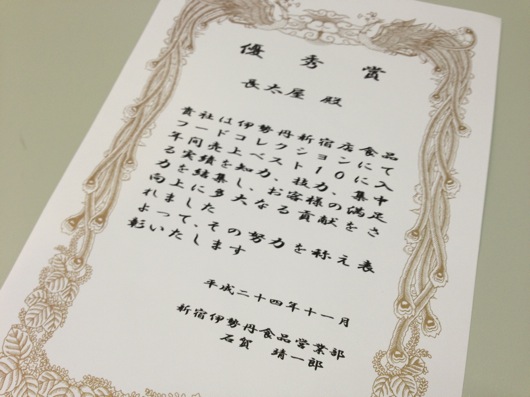 優秀賞
長太屋 殿
貴社は伊勢丹新宿店食品
フードコレクションにて
年間売上ベスト10に入
る実績を知力、技力、集中
力を結集し、お客様の満足
向上に多大なる貢献をさ
れました
よって、その努力を称え表
彰いたします
平成二十四年十一月
新宿伊勢丹食品営業部
石賀 靖一郎